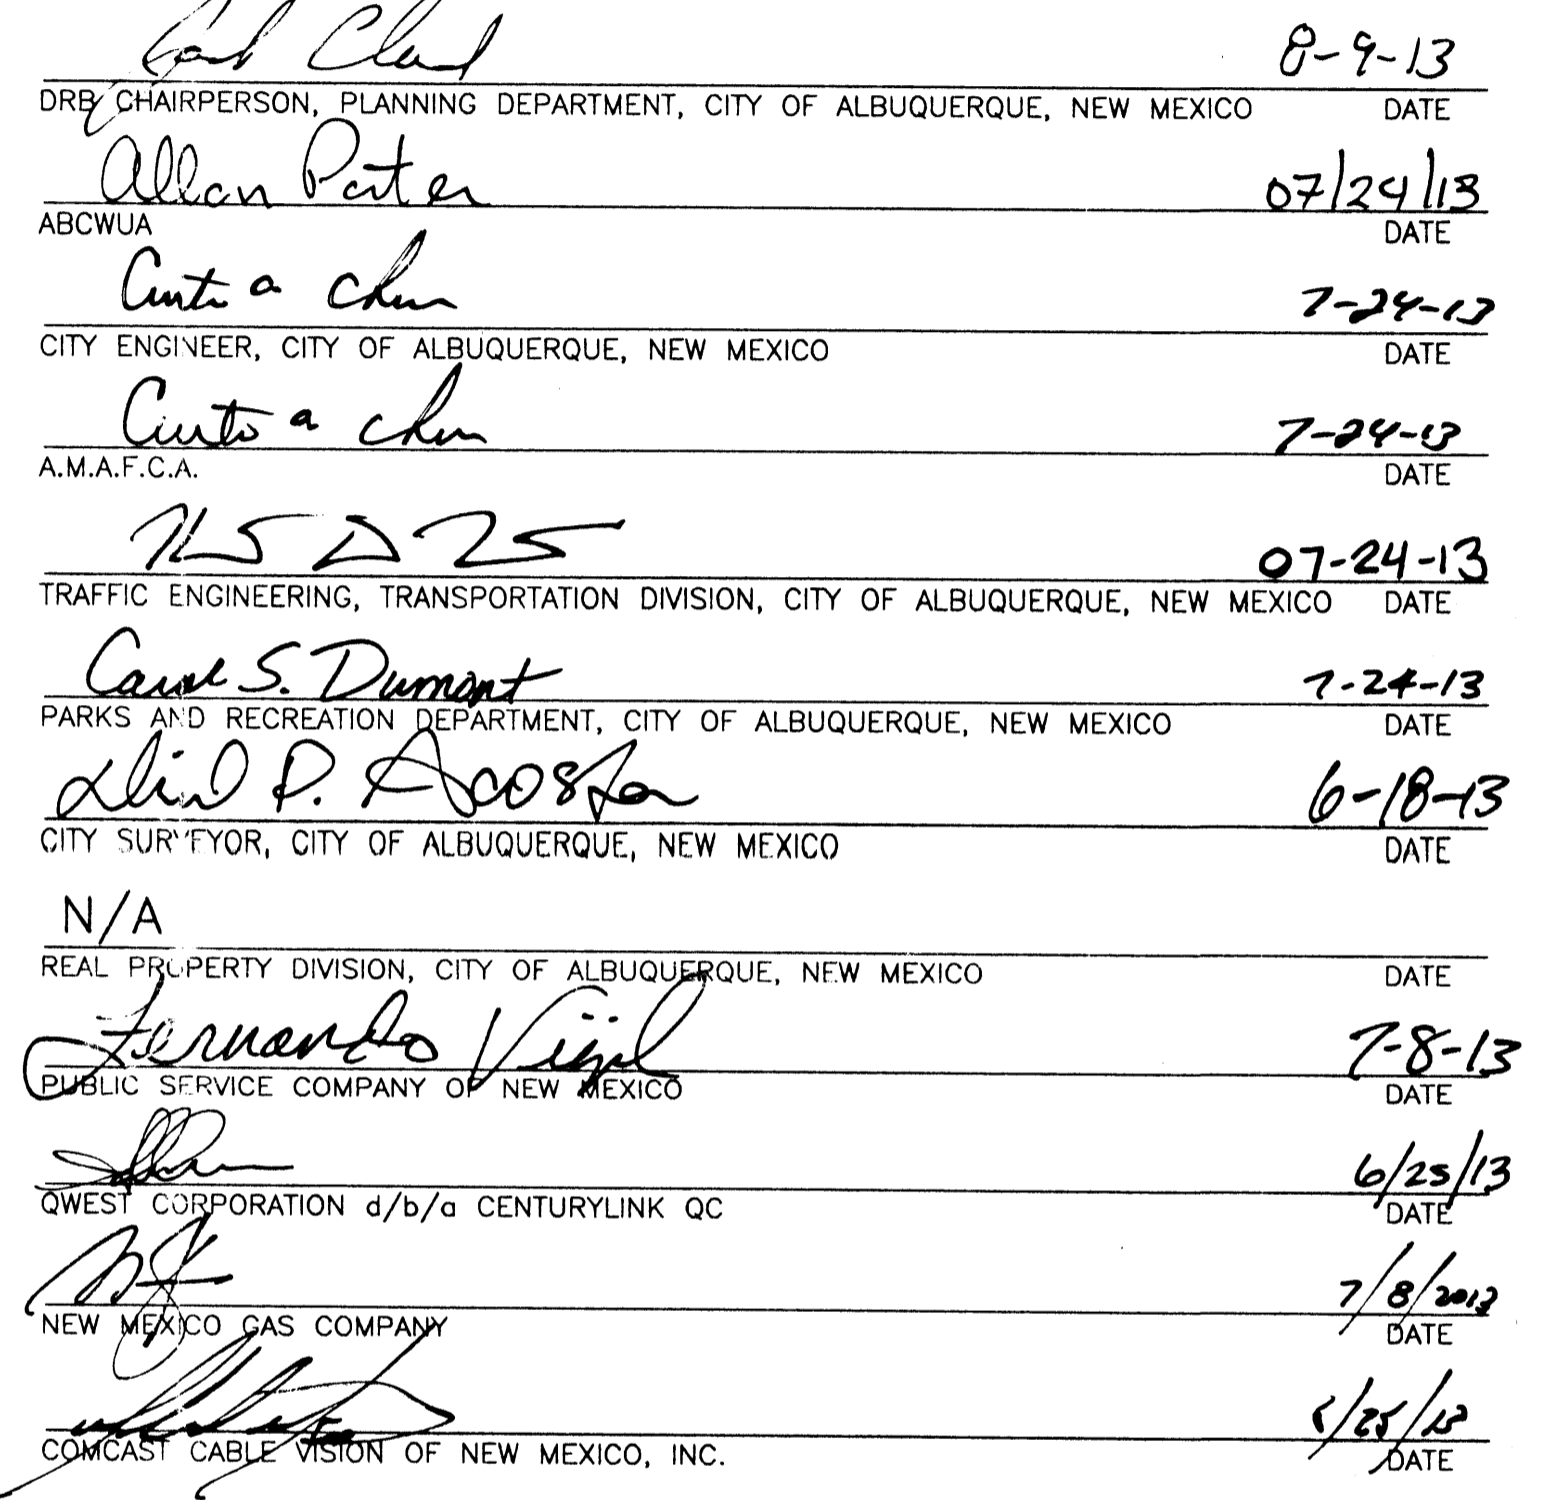 8-9-13
DRB CHAIRPERSON, PLANNING DEPARTMENT, CITY OF ALBUQUERQUE, NEW MEXICO DATE
Allan Porter 07/24/13
ABCWUA DATE
a 7-24-13
CITY ENGINEER, CITY OF ALBUQUERQUE, NEW MEXICO DATE
a 7-24-13
A.M.A.F.C.A. DATE
07-24-13
TRAFFIC ENGINEERING, TRANSPORTATION DIVISION, CITY OF ALBUQUERQUE, NEW MEXICO DATE
Carol S. Dumont 7-24-13
PARKS AND RECREATION DEPARTMENT, CITY OF ALBUQUERQUE, NEW MEXICO DATE
P. Acosta 6-18-13
CITY SURVEYOR, CITY OF ALBUQUERQUE, NEW MEXICO DATE
N/A
REAL PROPERTY DIVISION, CITY OF ALBUQUERQUE, NEW MEXICO DATE
Fernando Vigil 7-8-13
PUBLIC SERVICE COMPANY OF NEW MEXICO DATE
6/25/13
QWEST CORPORATION d/b/a CENTURYLINK QC DATE
7/8/2013
NEW MEXICO GAS COMPANY DATE
COMCAST CABLE VISION OF NEW MEXICO, INC. DATE